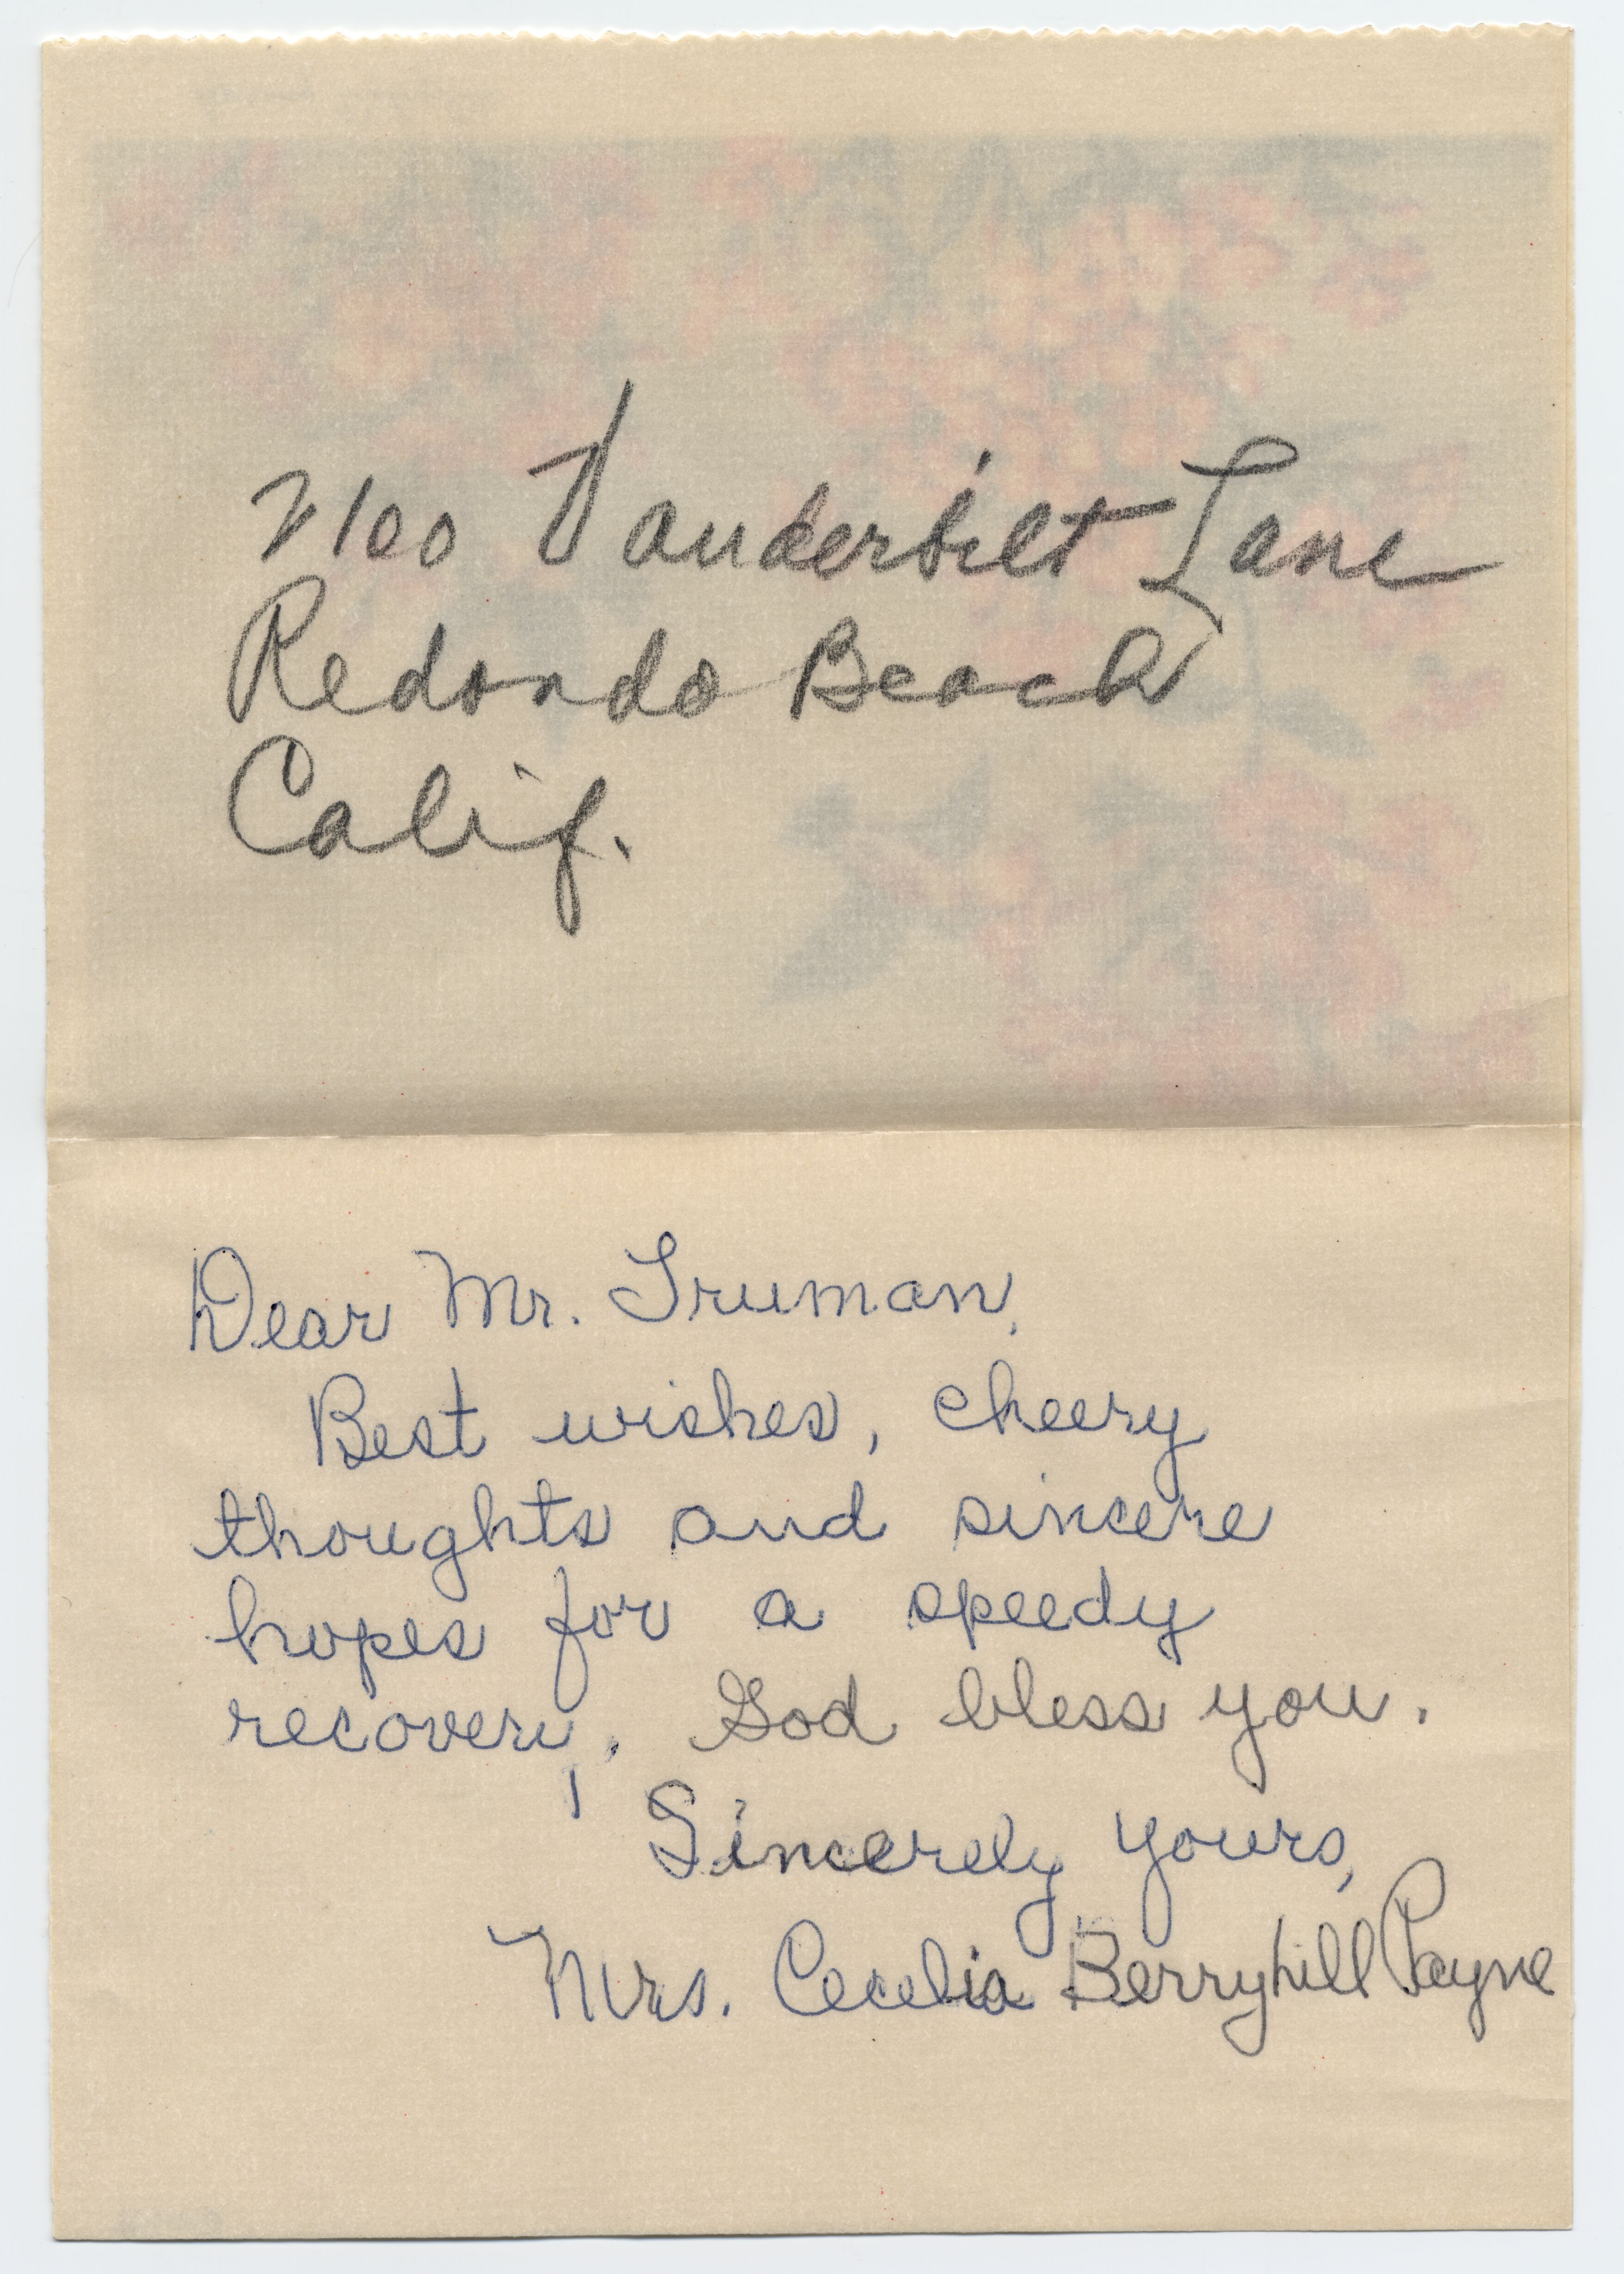 2100 Vanderbilt Lane
Redondo Beach
Calif.
Dear Mr. Truman,
Best wishes, cheery
thoughts and sincere
hopes for a speedy
recovery. God bless you.
Sincerely yours,
Mrs. Cecelia Berryhill Payne